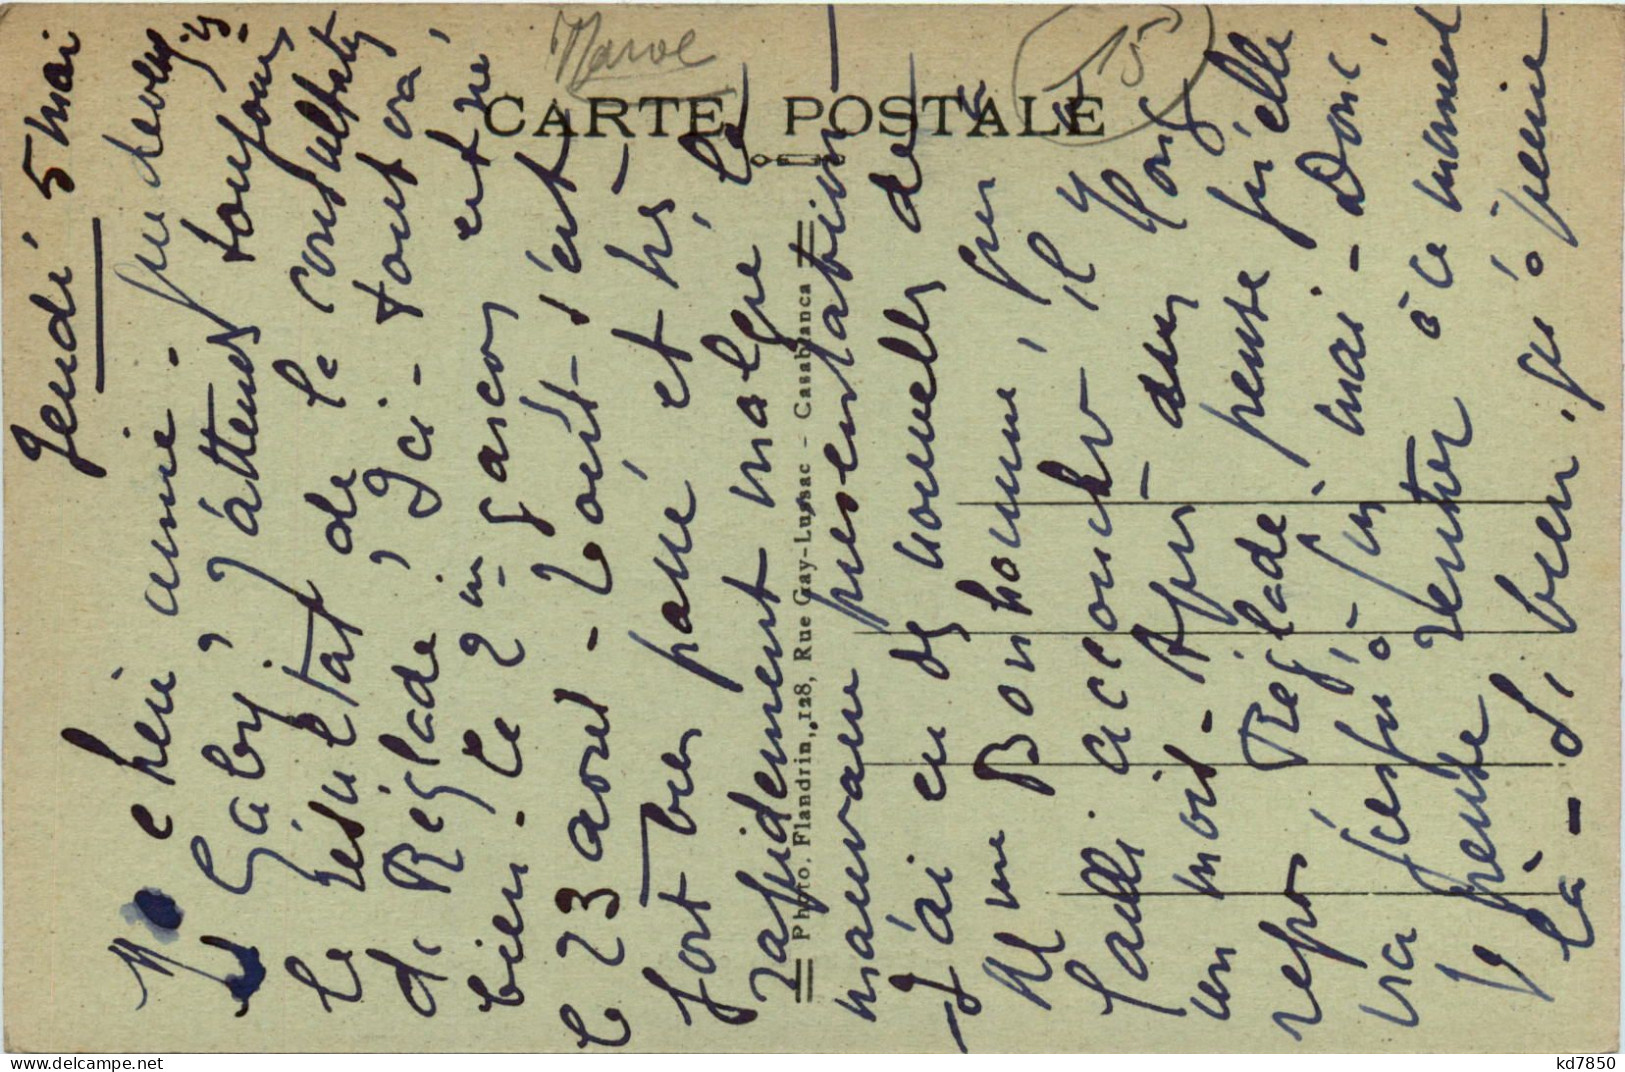 Maroc
15
CARTE POSTALE
Photo. Flandrin, 128, Rue Gay-Lussac - Casablanca
Jeudi 5 mai
Ma chère amie - que devenez
Gaby? J'attends toujours
le résultat de la consultation
de Réglade? Ici - tout va
bien - le 2me garçon est né
le 23 avril - Tout s'est
fort bien passé et très
rapidement malgré la
mauvaise présentation -
J'ai eu des nouvelles de
Mme Bonhomme, qui a
failli accoucher, il y a
un mois - Après deux mois
repos Réglade pense qu'elle
ira jusqu'à fin mai - Donc
je pense rentrer à ce moment
là - Si bien qu'à peine
kd7850